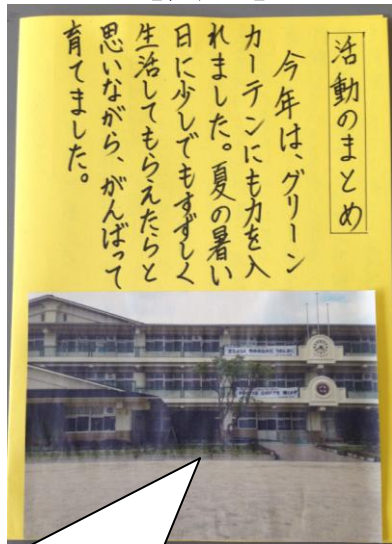 活動のまとめ
今年は、グリーン
カーテンにも力を入
れました。夏の暑い
日に少しでもすずしく
生活してもらえたらと
思いながら、がんばって
育てました。